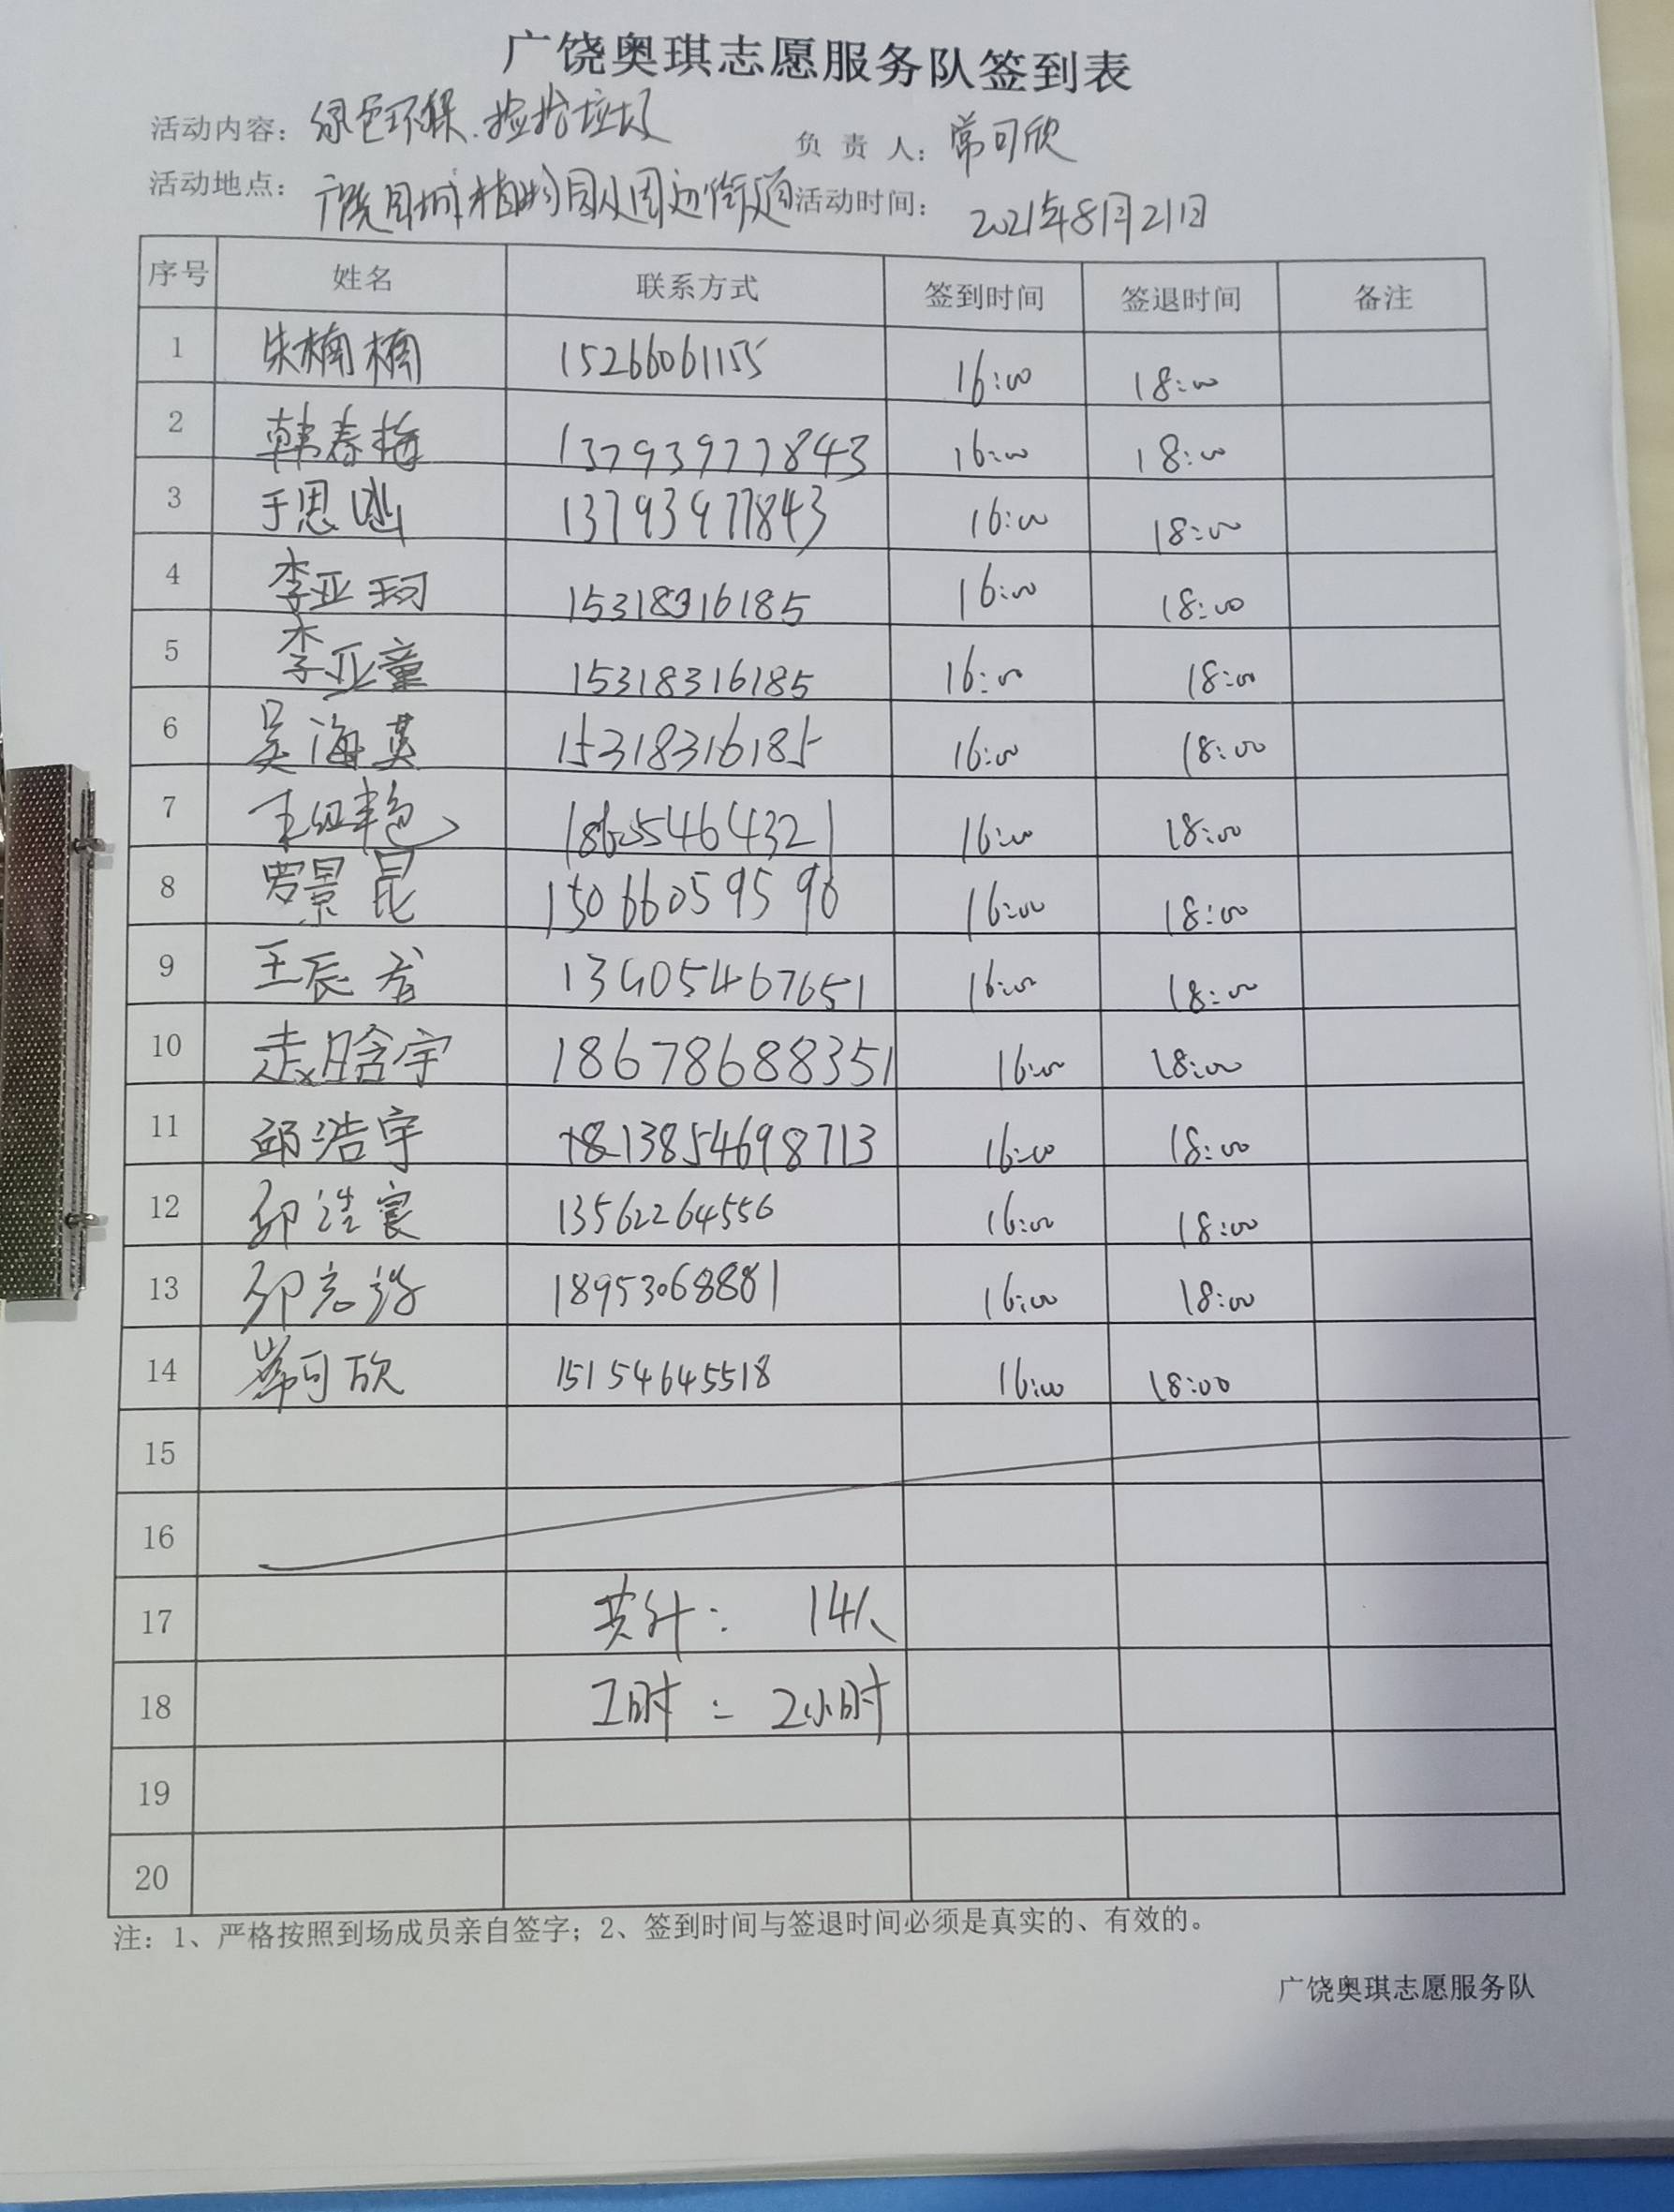 广饶奥琪志愿服务队签到表
活动内容：绿色环保.捡拾垃圾 负责人：常可欣
活动地点：广饶县城植物园及周边街道 活动时间：2021年8月21日
序号 姓名 联系方式 签到时间 签退时间 备注
1 朱楠楠 15266061155 16:00 18:00
2 韩春梅 13793977843 16:00 18:00
3 于思 13793977843 16:00 18:00
4 李亚珂 15318316185 16:00 18:00
5 李亚童 15318316185 16:00 18:00
6 吴海英 15318316185 16:00 18:00
7 18655464321 16:00 18:00
8 罗景昆 15066059596 16:00 18:00
9 王辰 13405467651 16:00 18:00
10 赵晗宇 18678688351 16:00 18:00
11 邱浩宇 13854698713 16:00 18:00
12 邱浩宸 13562264556 16:00 18:00
13 18953068881 16:00 18:00
14 常可欣 15154645518 16:00 18:00
15
16
17 共计： 14人
18 工时： 2小时
19
20
注：1、严格按照到场成员亲自签字；2、签到时间与签退时间必须是真实的、有效的。
广饶奥琪志愿服务队